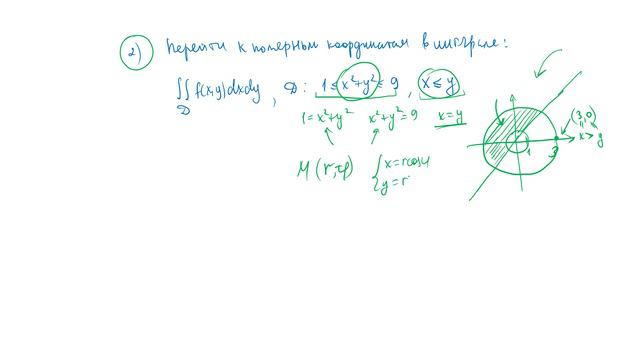 2) Перейти к полярным координатам в интеграле:
∬ f(x,y)dxdy, D: 1 ≤ x²+y² ≤ 9, x ≤ y
D
1=x²+y² x²+y²=9 x=y
M(r,φ) { x=rcosφ
y=r
(3,0)
x > y
1
3